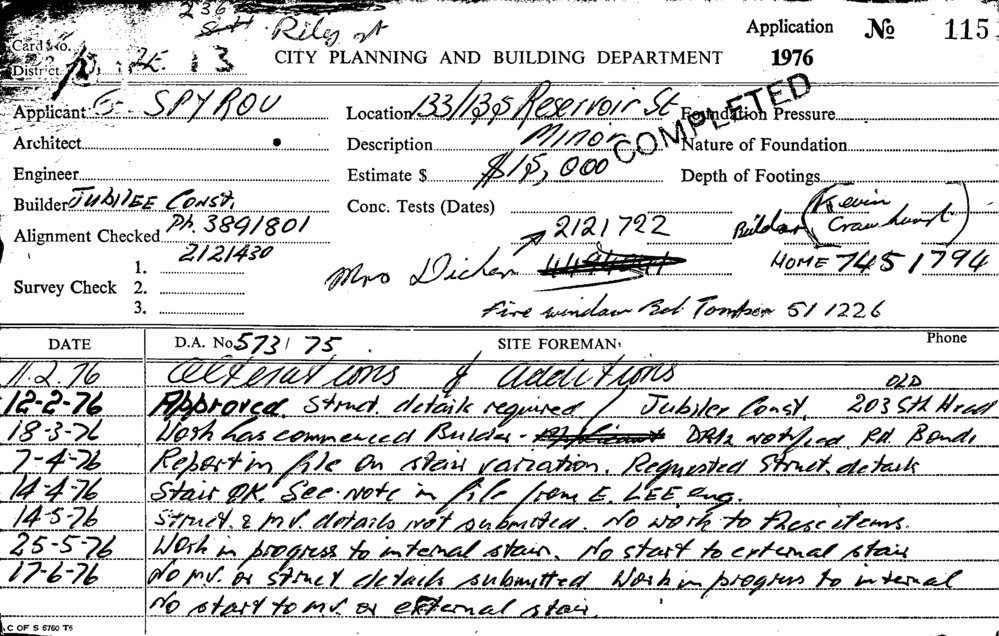 236
Riley St
Application No 115
Card No.
District 13
CITY PLANNING AND BUILDING DEPARTMENT
1976
COMPLETED
Applicant G. SPYROU
Location 133/135 Reservoir St
Foundation Pressure
Architect
Description Minor
Nature of Foundation
Engineer
Estimate $ $15,000
Depth of Footings
Builder JUBILEE CONST.
Conc. Tests (Dates)
Builder (Kevin
Crawhurst)
Alignment Checked Ph. 3891801
2121722
2121430
Mrs
HOME 7451794
Survey Check 1.
2.
3.
Fire window Bob 51 1226
DATE D.A. No 573/75. SITE FOREMAN: Phone
11.2.76 Alterations & additions
12-2-76 Approved. Struct. details required / Jubilee Const. OLD 203 Sth Head
18-3-76 Work has commenced Builder - notified Rd. Bondi
7-4-76 Report in file on stair variation. Requested Struct. details
14-4-76 Stair OK. See note in file from E. LEE eng.
14-5-76 Struct. & m.v. details not submitted. No work to these items.
25-5-76 Work in progress to internal stair. No start to external stair
17-6-76 No m.v. or struct details submitted Work in progress to internal
No start to m.v. or external stair.
C OF S 6760 T6